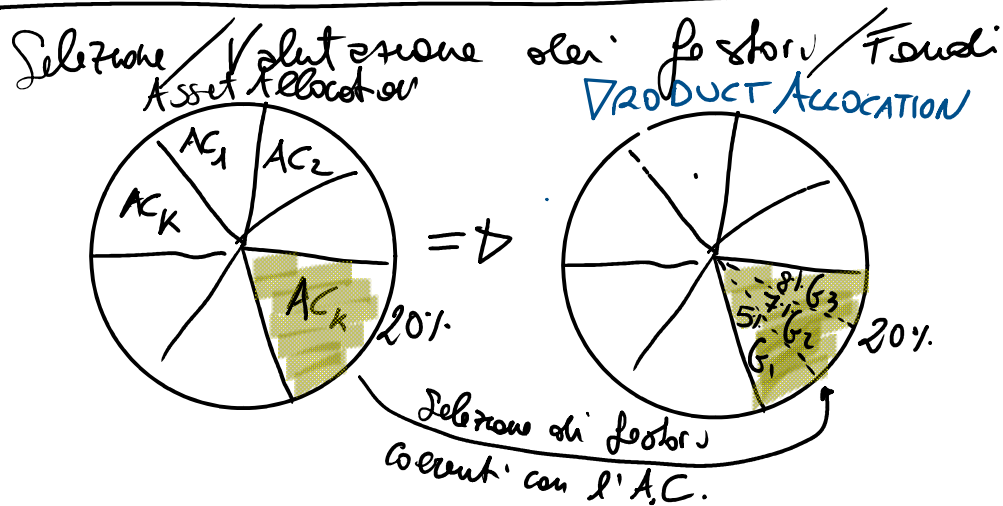 Selezione/Valutazione dei Gestori/Fondi
Asset Allocation
PRODUCT ALLOCATION
AC1
AC2
ACK
ACK
20%
=>
8%
7%
5%
G3
G2
G1
20%
Selezione di Gestori
coerenti con l'A.C.